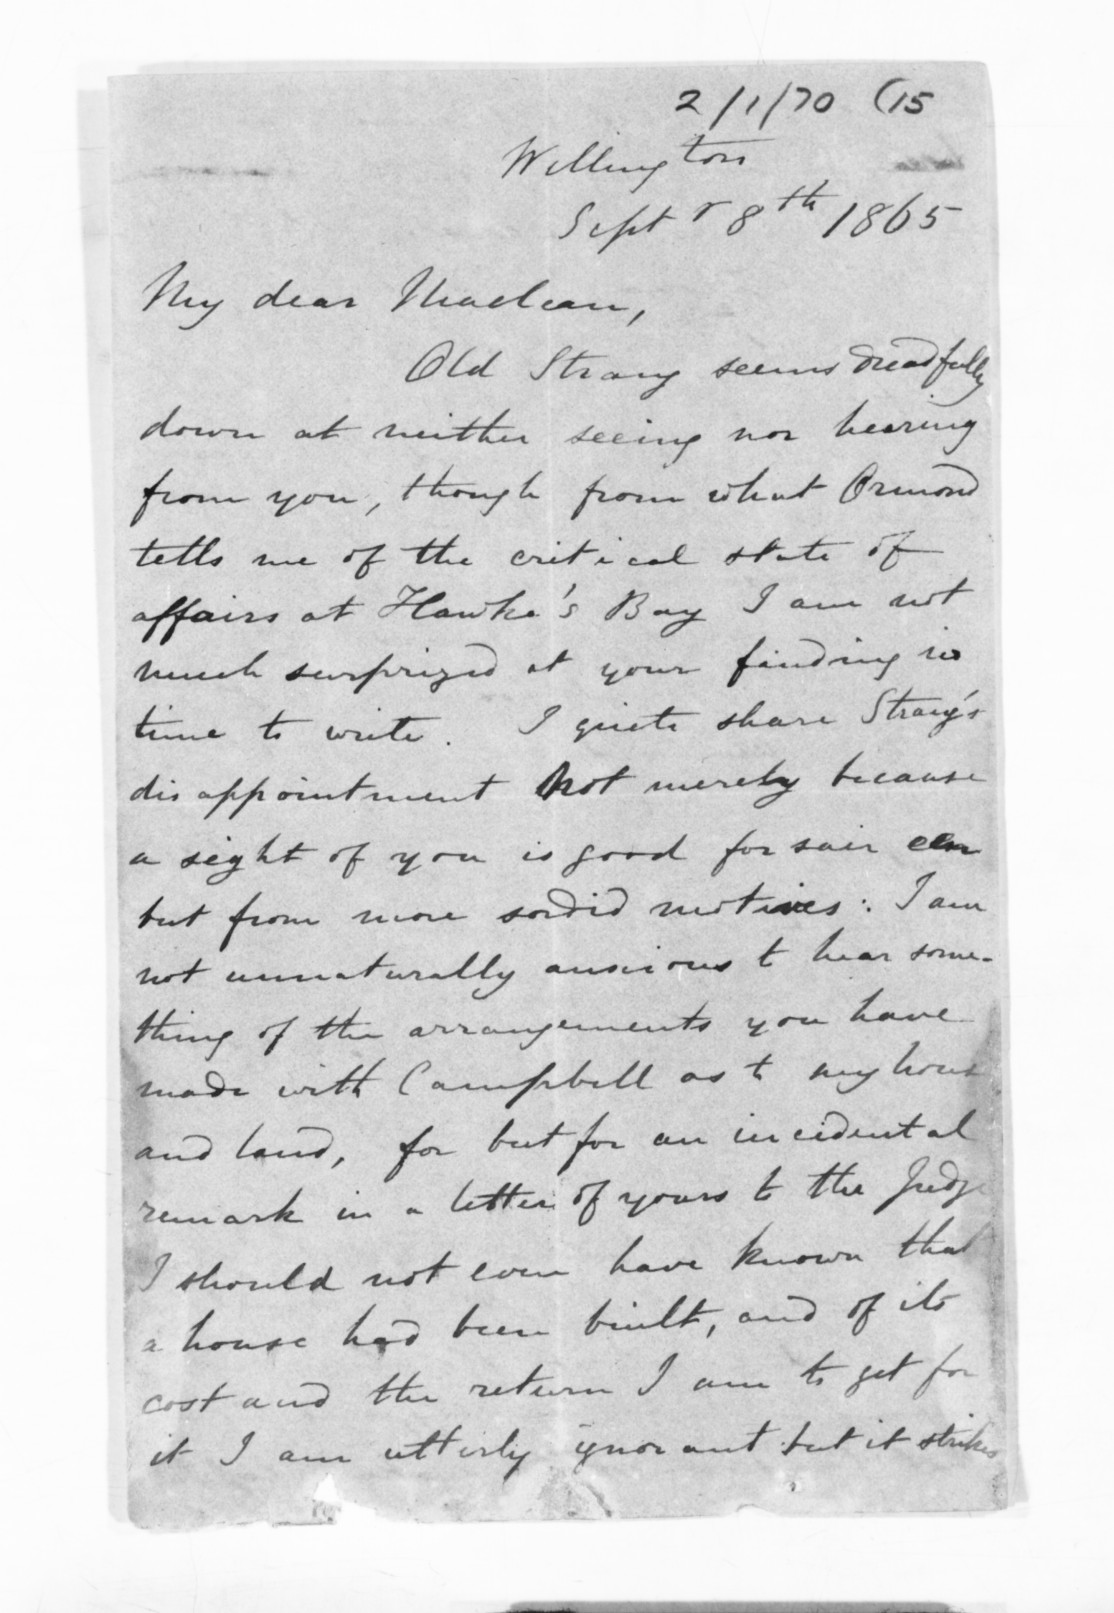 2/1/70 (15
Wellington
Septr 8th 1865
My dear Maclean,
Old Strang seems dreadfully
down at neither seeing nor hearing
from you, though from what Ormond
tells me of the critical state of
affairs at Hawke's Bay I am not
much surprized at your finding no
time to write. I quite share Strang's
disappointment not merely because
a sight of you is good for sair een
but from more sordid motives: I am
not unnaturally anxious to hear some-
thing of the arrangements you have
made with Campbell as to my house
and land, for but for an incidental
remark in a letter of yours to the Judge
I should not even have known that
a house had been built, and of its
cost and the return I am to get for
it I am utterly ignorant but it strikes